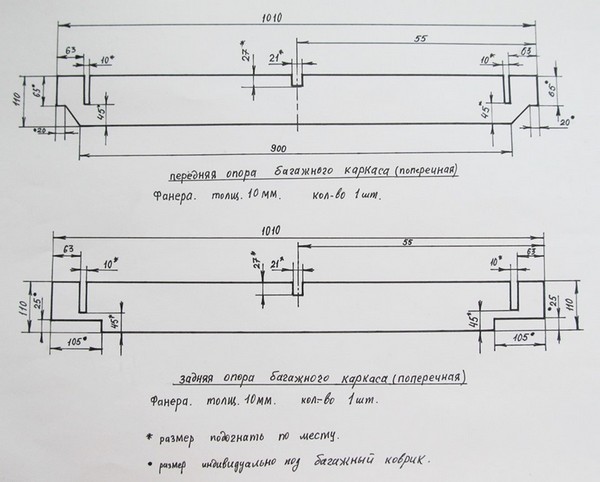 1010
55
63
10*
27*
21*
10*
63
110
65*
45*
45*
65*
*20
20*
900
передняя опора багажного каркаса (поперечная)
Фанера. толщ. 10 мм. кол-во 1 шт.
1010
55
63
10*
27*
21*
10*
63
110
25*
45*
45*
*25
110
105*
105*
задняя опора багажного каркаса (поперечная)
Фанера. толщ. 10 мм. кол-во 1 шт.
* размер подогнать по месту.
• размер индивидуально под багажный коврик.